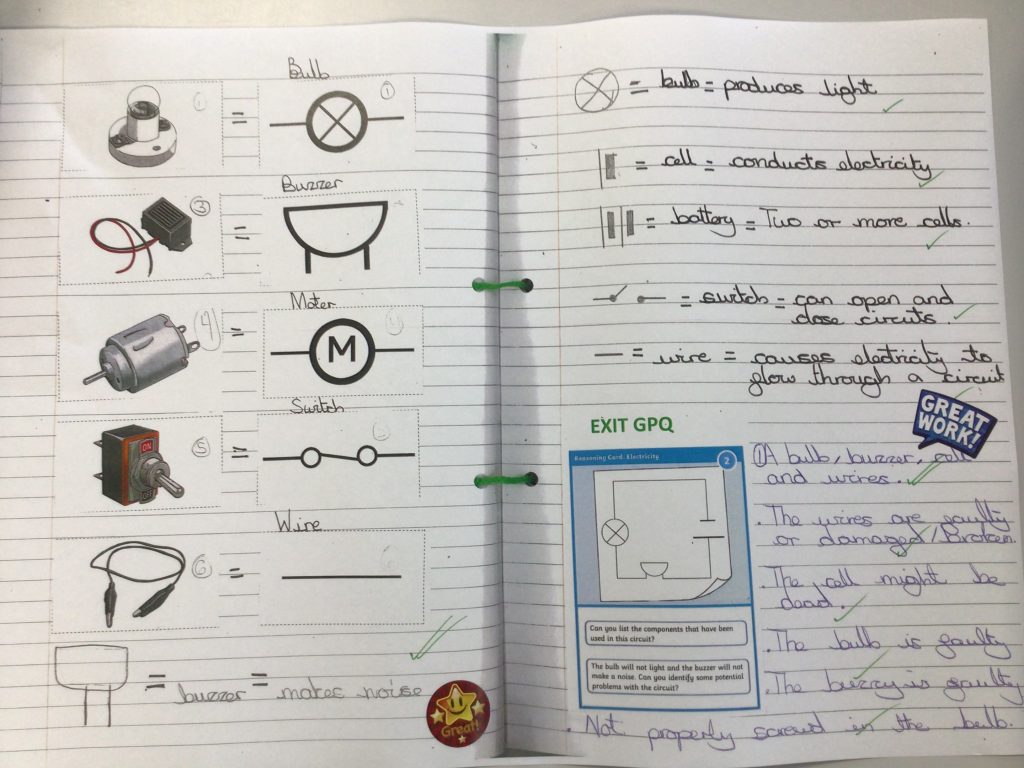 Bulb
① = ①
Buzzer
③ =
Moter
4 =
M
Switch
ON
OFF
⑤ =
Wire
6 =
= buzzer = makes noise
Great!
= bulb = produces light
= cell = conducts electricity
= battery = Two or more cells.
= switch = can open and
close circuits.
= wire = causes electricity to
flow through a circuit
GREAT
WORK!
EXIT GPQ
Reasoning Card: Electricity
2
Can you list the components that have been
used in this circuit?
The bulb will not light and the buzzer will not
make a noise. Can you identify some potential
problems with the circuit?
① A bulb, buzzer, cell
and wires.
. The wires are faulty
or damaged/Broken.
. The cell might be
dead.
. The bulb is faulty
. The buzzy is faulty
. Not properly screwd in the bulb.